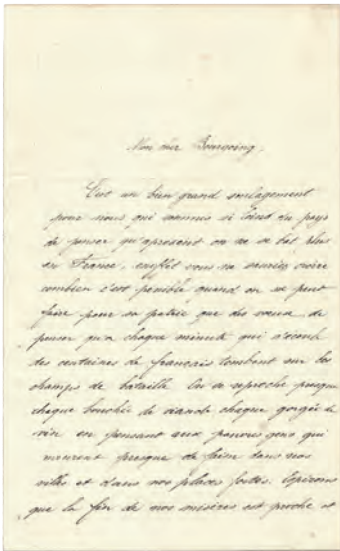 Mon cher Bourgoing,
C'est un bien grand soulagement
pour nous qui sommes si loin du pays
de penser qu'apresent on ne se bat plus
en France, vous ne sauriez croire
combien c'est penible quand on ne peut
faire pour sa patrie que des vœux, de
penser qu'a chaque minute qui s'ecoule
des centaines de francais tombent sur les
champs de bataille. On se reproche presque
chaque bouchée de viande chaque gorgée de
vin en pensant aux pauvres gens qui
meurent presque de faim dans nos
villes et dans nos places fortes. Espérons
que la fin de nos misères est proche et